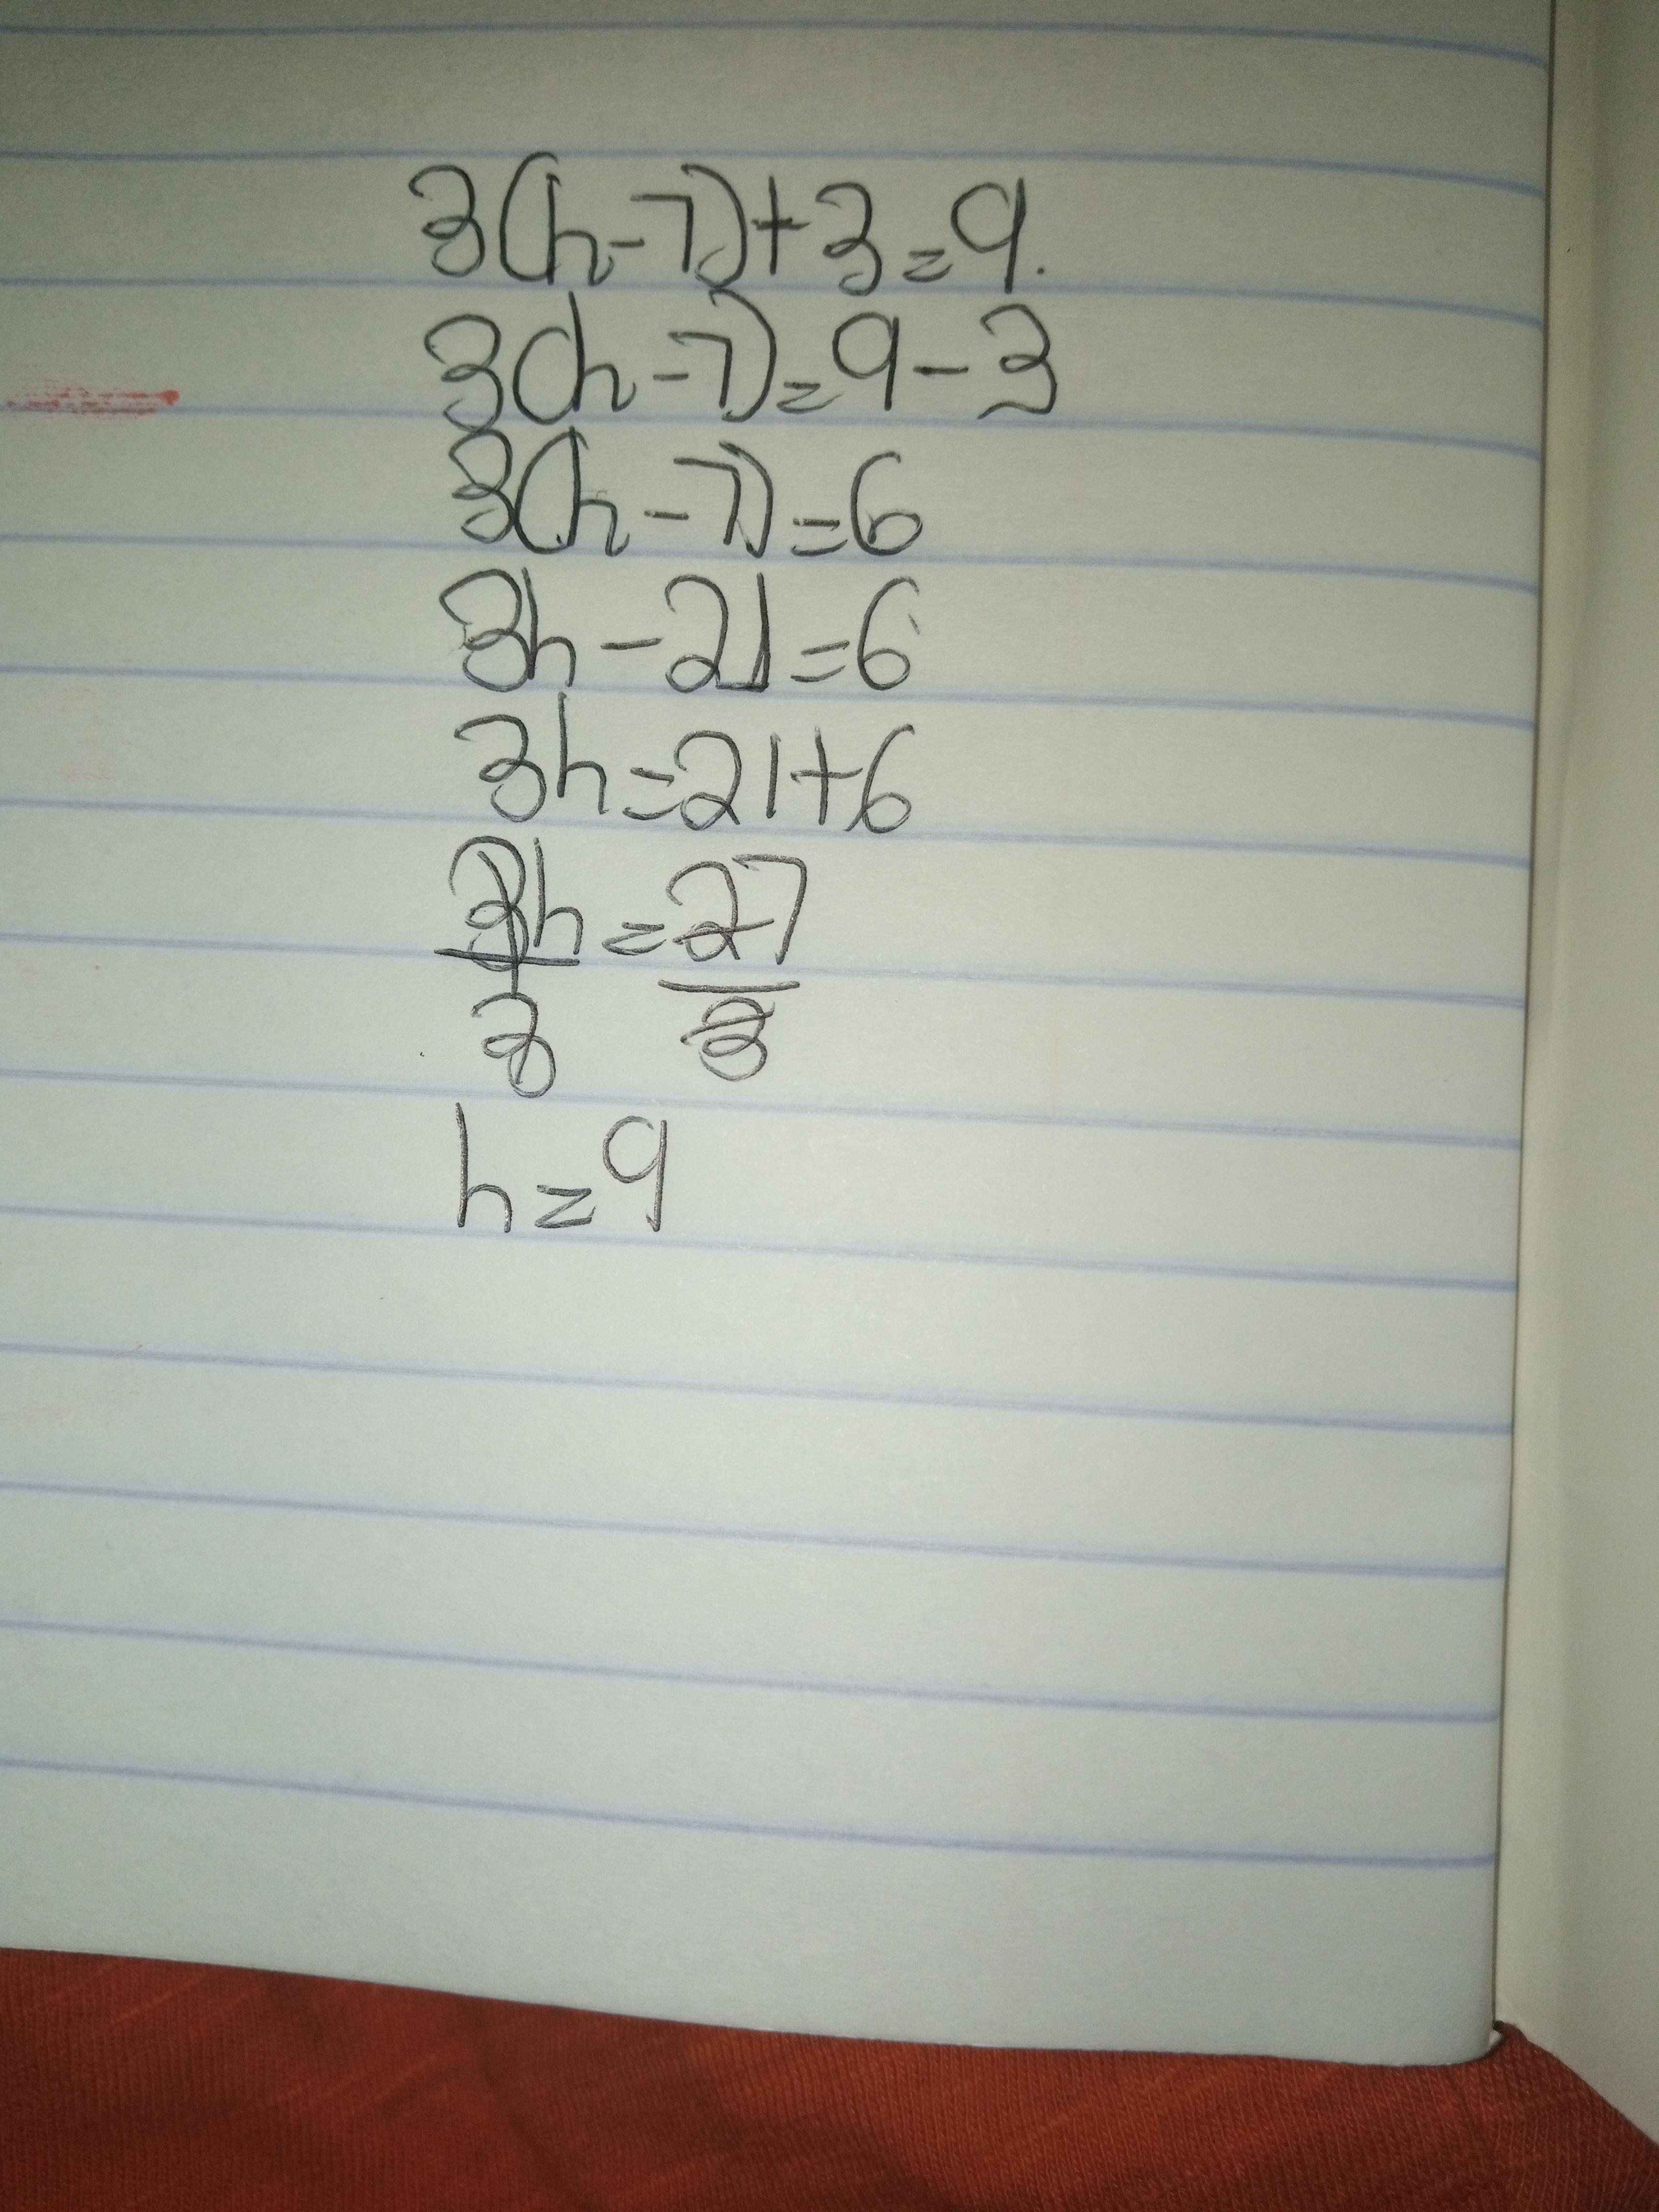 3(h-7)+3=9.
3(h-7)=9-3
3(h-7)=6
3h-21=6
3h=21+6
3h/3=27/3
h=9